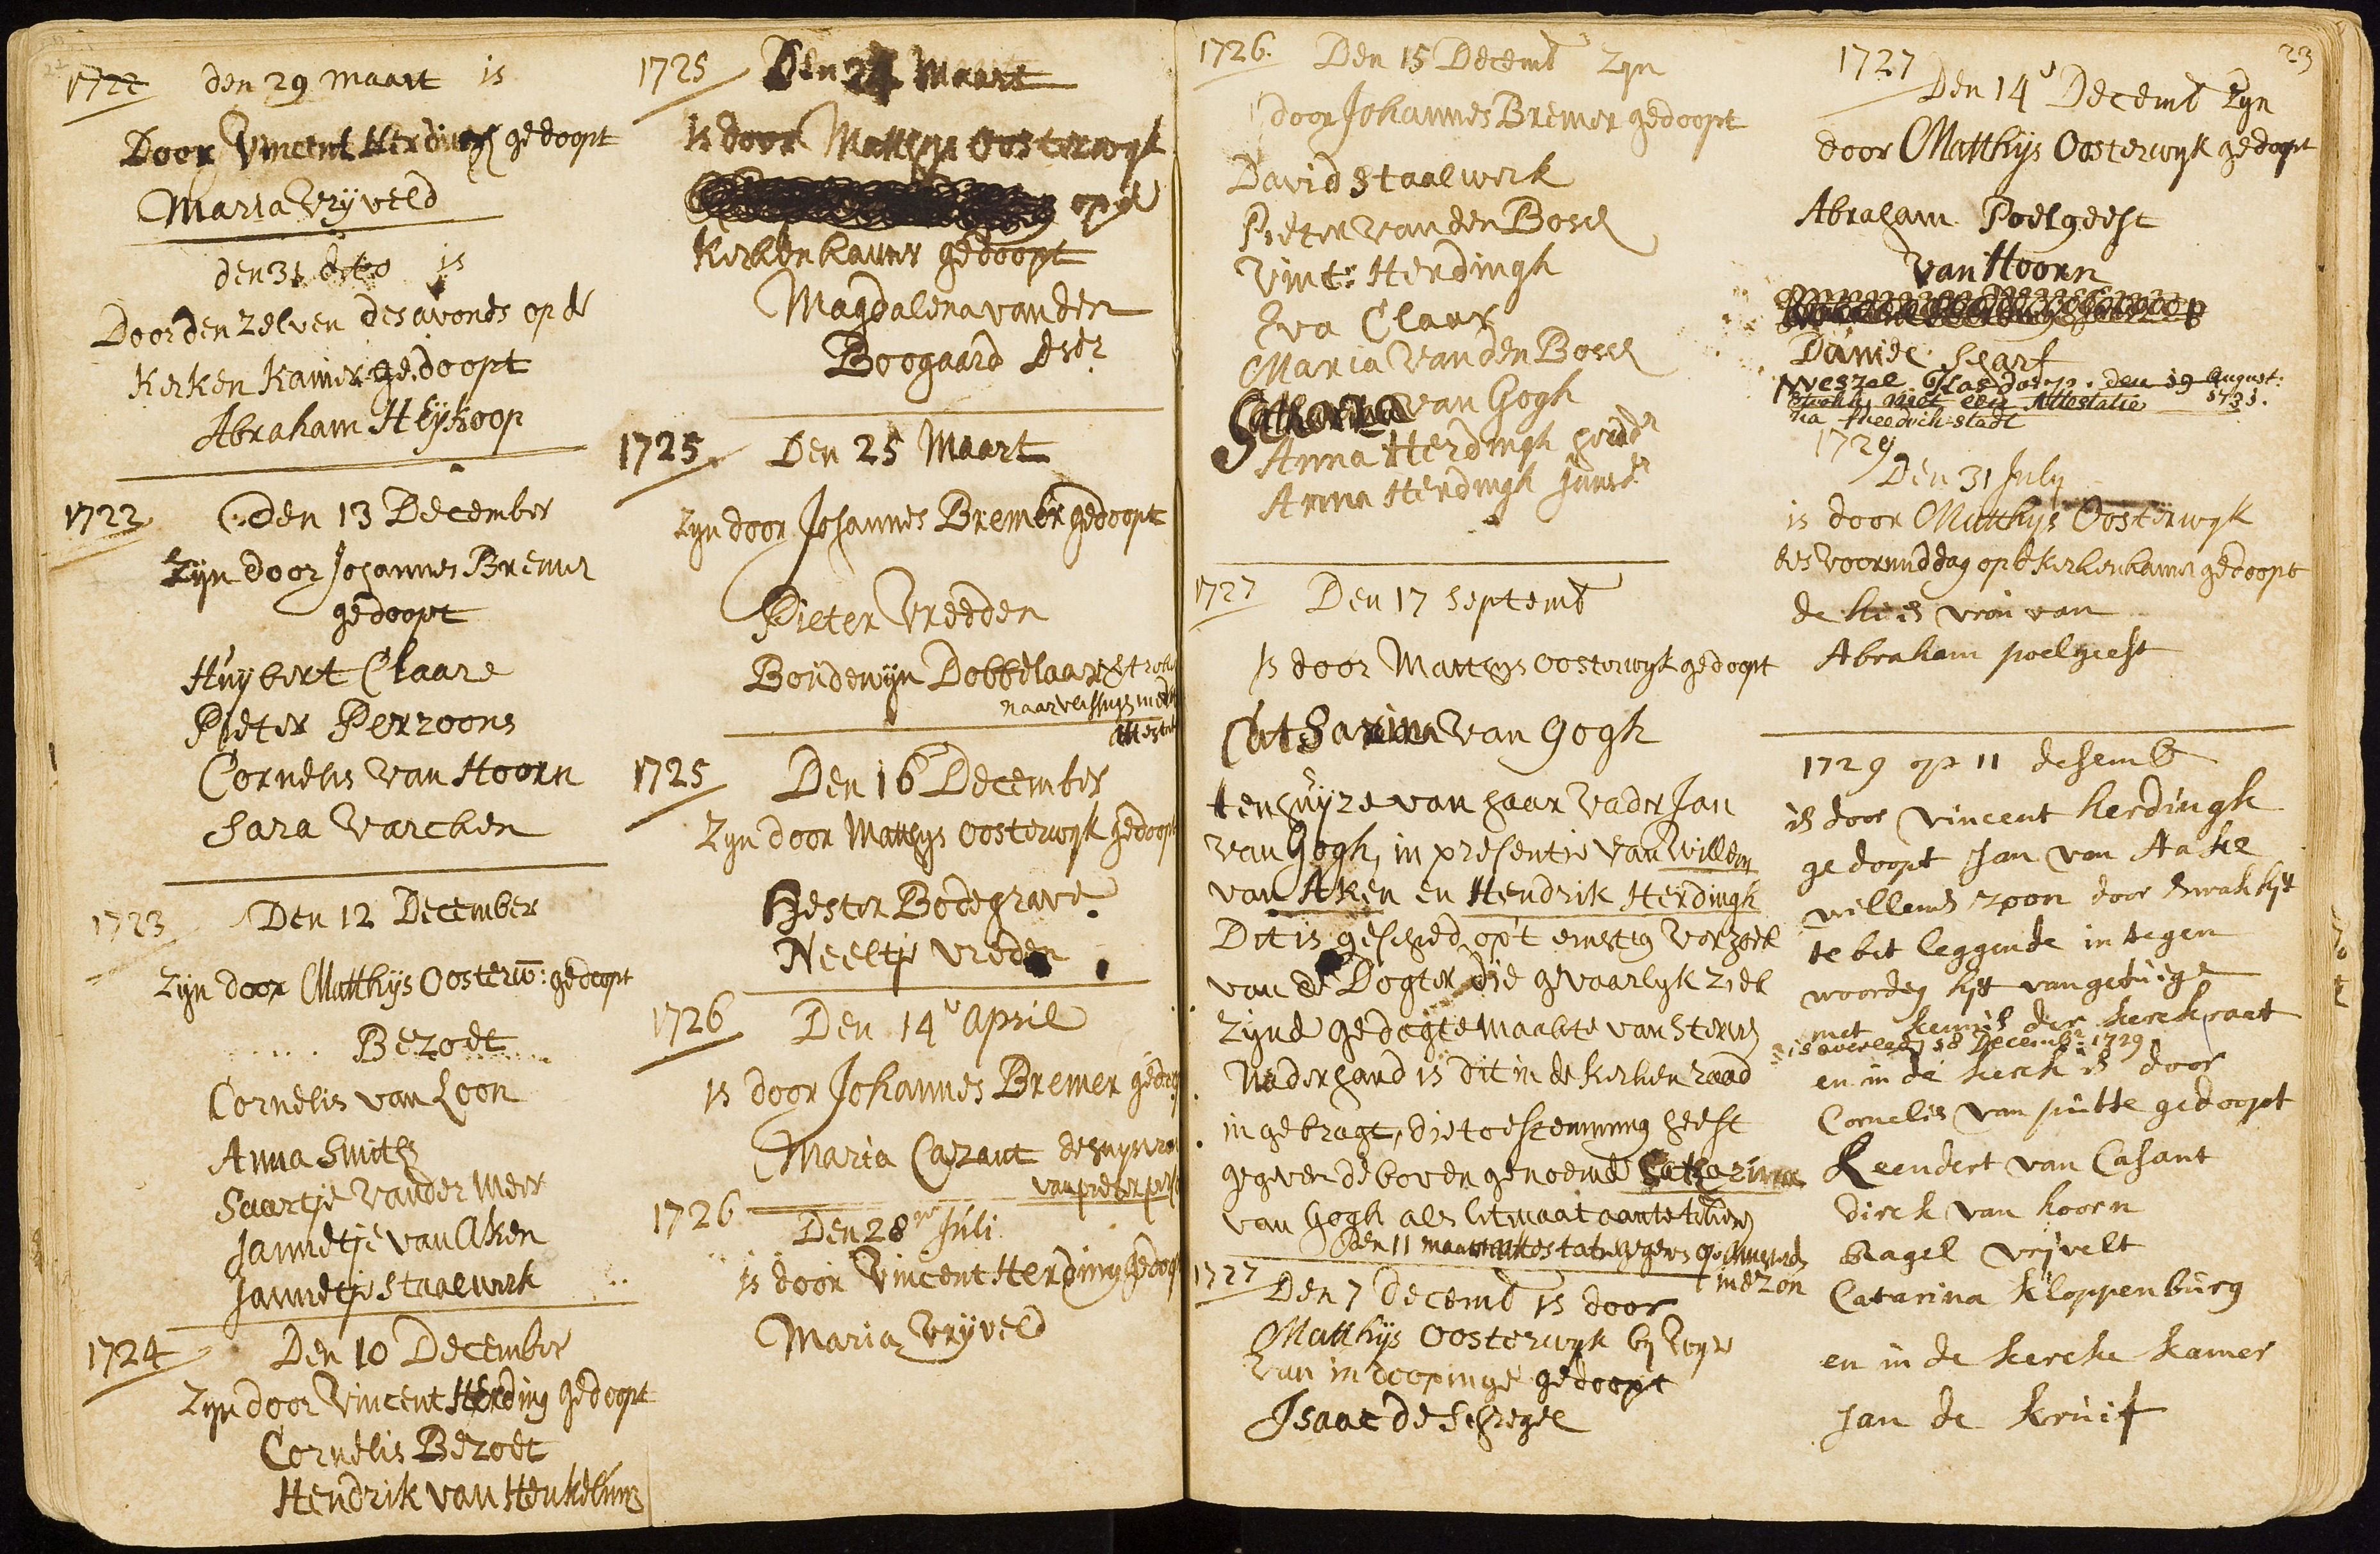 1722 den 29 maart is
Door Vincent Herdingh gedoopt
Maria Vrijveld
den 31 dito is
Door den zelven des avonds op de
Kerken Kamer gedoopt
Abraham Heijkoop
1722 den 13 December
zijn door Johannes Bremer
gedoopt
Huijbert Claare
Pieter Perzoons
Cornelis van Hoorn
Sara Varcken
1723 Den 12 December
zijn door Matthijs Oosterw: gedoopt
Bezoet
Cornelis van Loon
Anna Smith
Saartje vander Meer
Jannetje van Aken
Jannetje Staalwerk
1724 Den 10 December
Zijn door Vincent Herding gedoopt
Cornelis Bezoet
Hendrik van Heukelum
1725 Den 24 Maart
Is door Matthijs Oosterwijk
op de
Kerken kamer gedoopt
Magdalena van den
Boogaard
1725. Den 25 Maart
zijn door Johannes Bremer gedoopt
Pieter Vredden
Boudewijn Dobbelaar
naar
attest
1725 Den 16 December
Zijn door Matthijs Oosterwijk gedoopt
Hester Bodegrave.
Neeltje Vreden
1726 Den 14e April
is door Johannes Bremer gedoop
Maria Cazant de huijsvro
van pieter per
1726 Den 28ste Júli
is door Vincent Herding gedoop
Maria Vrijveld
1726. Den 15 Decemb Zijn
door Johannes Bremer gedoopt
David Staalwerk
Pieter van den Bosch
Vinct: Herdingh
Eva Claar
Maria van den Bosch
Catharina van Gogh
Anna Herdingh
Anna Herdingh Junr
1727 Den 17 Septemb
Is door Matthijs Oosterwijk gedoopt
Catharina van Gogh
ten huijze van haar Vader Jan
van Gogh, in presentie van Willem
van Aken en Hendrik Herdingh
Dit is geschied op't ernstig verzoek
van de Dogter die gevaarlijk ziek
Zijnde gedagte maakte van sterven
Naderhand is dit in de Kerken raad
in gebragt, die toestemming heeft
gegeven de boven genoemde Catharina
van Gogh als litmaat aan te tekenen
den 11 maart
1727 Den 7 Decemb is door
Matthijs Oosterwijk bij wijze
van in doopinge gedoopt
Isaac de Schregel
23
1727
Den 14e Decemb Zijn
door Matthijs Oosterwijk gedoopt
Abraham Poelgeest
van Hoorn
Daniel Scharf
den 19 August:
met een Attestatie 1731.
na
1729
Den 31 July
is door Matthijs Oosterwijk
des voormiddag op de Kerkenkamer gedoopt
de huis vrou van
Abraham poelgeest
1729 op 11 desemb
is door Vincent herdingh
gedoopt Jan van Aake
willems zoon door swakhijt
te bet leggende in tegen
woordeg hijt van getuige
met kennis der kerckraat
is overleeden 18 Decemb: 1729
en in de kerck is door
Cornelis van putte gedoopt
Leendert van Casant
dirck van hoorn
bagel vrijvelt
Catarina Kloppenburg
en in de kercke kamer
Jan de kruif